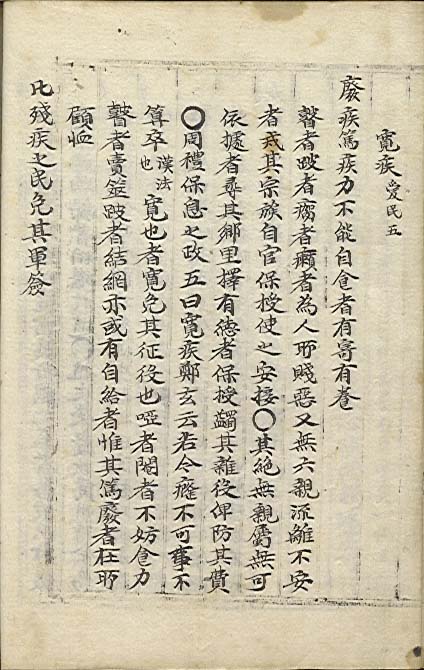 寬疾 愛民五
廢疾篤疾力不能自食者有寄有養
瞽者跛者㿉者癩者為人所賤惡又無六親流離不安
者戒其宗族自官保授使之安接〇其絕無親屬無可
依據者尋其鄉里擇有德者保授蠲其雜役俾防其費
〇周禮保息之政五曰寬疾鄭玄云若今癃不可事不
算卒 漢法也 寬也者寬免其征役也啞者閹者不妨食力
瞽者賣筮跛者結網亦或有自給者惟其篤廢者在所
顧恤
比殘疾之民免其軍簽